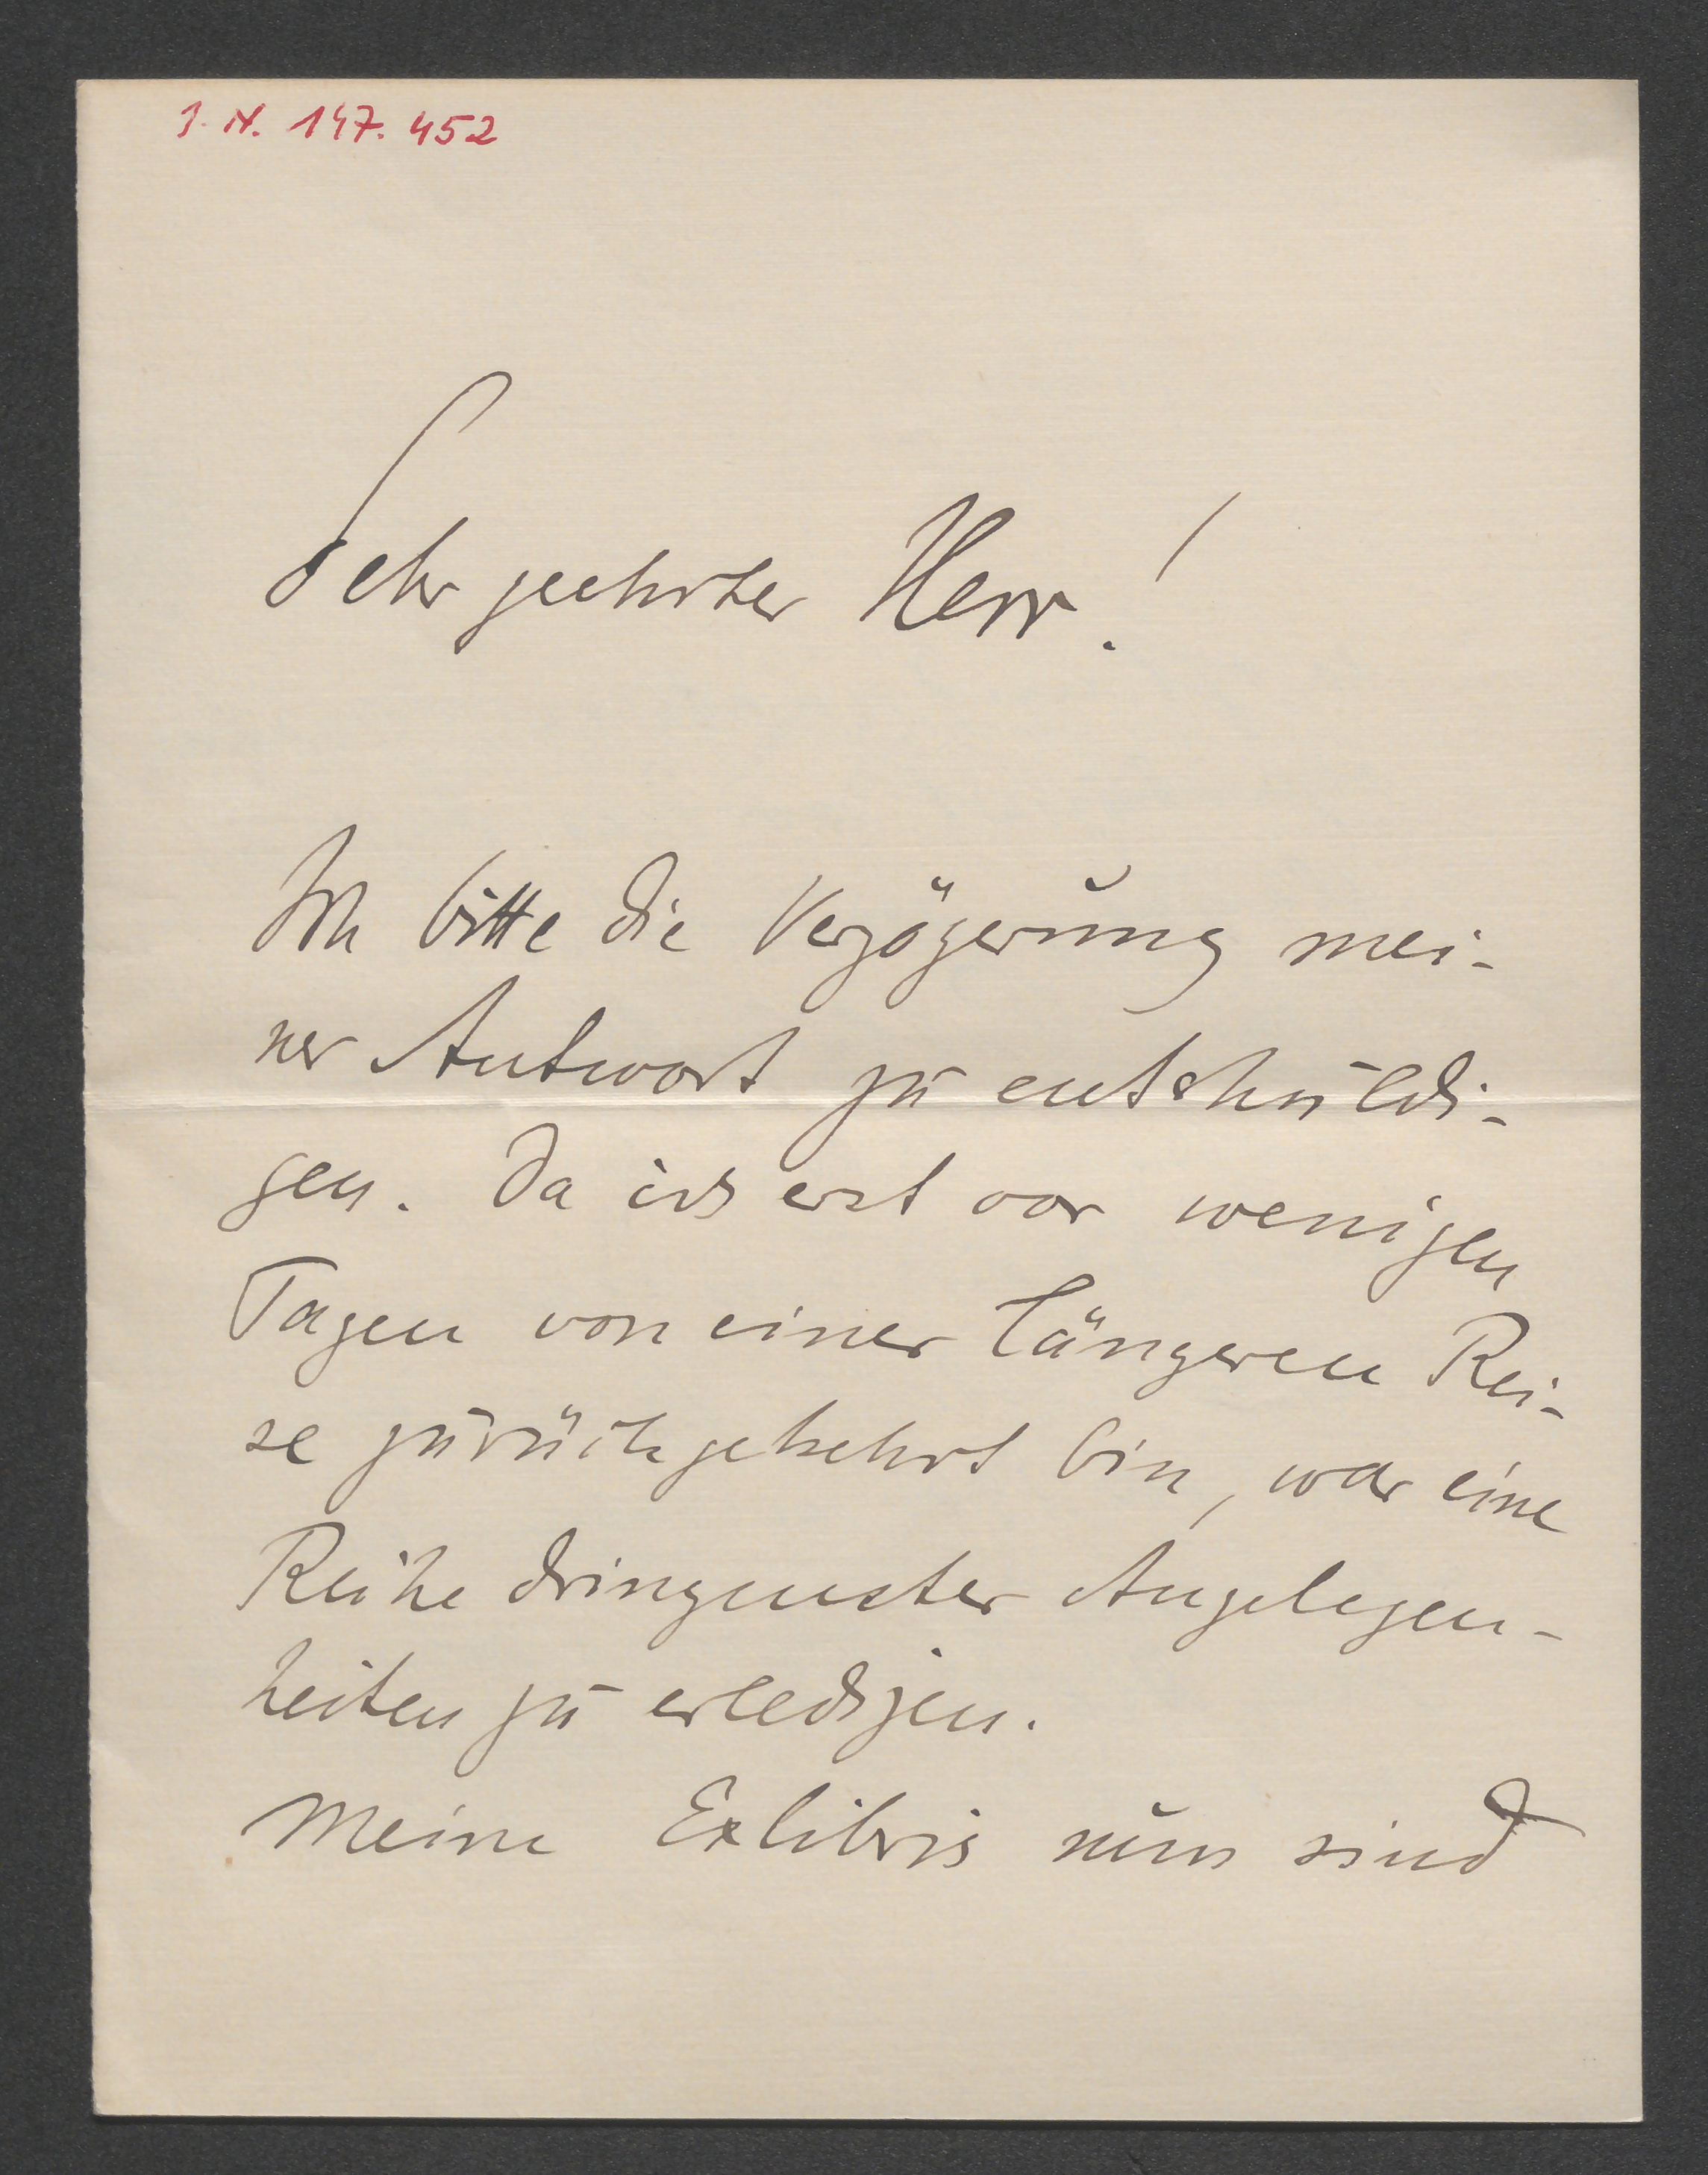 I. N. 147.452
Sehr geehrter Herr!
Ich bitte die Verzögerung mei-
ner Antwort zu entschuldi-
gen. Da ich erst vor wenigen
Tagen von einer längeren Rei-
se zurückgekehrt bin, war eine
Reihe dringenster Angelegen-
heiten zu erledigen.
Meine Exlibris nun sind